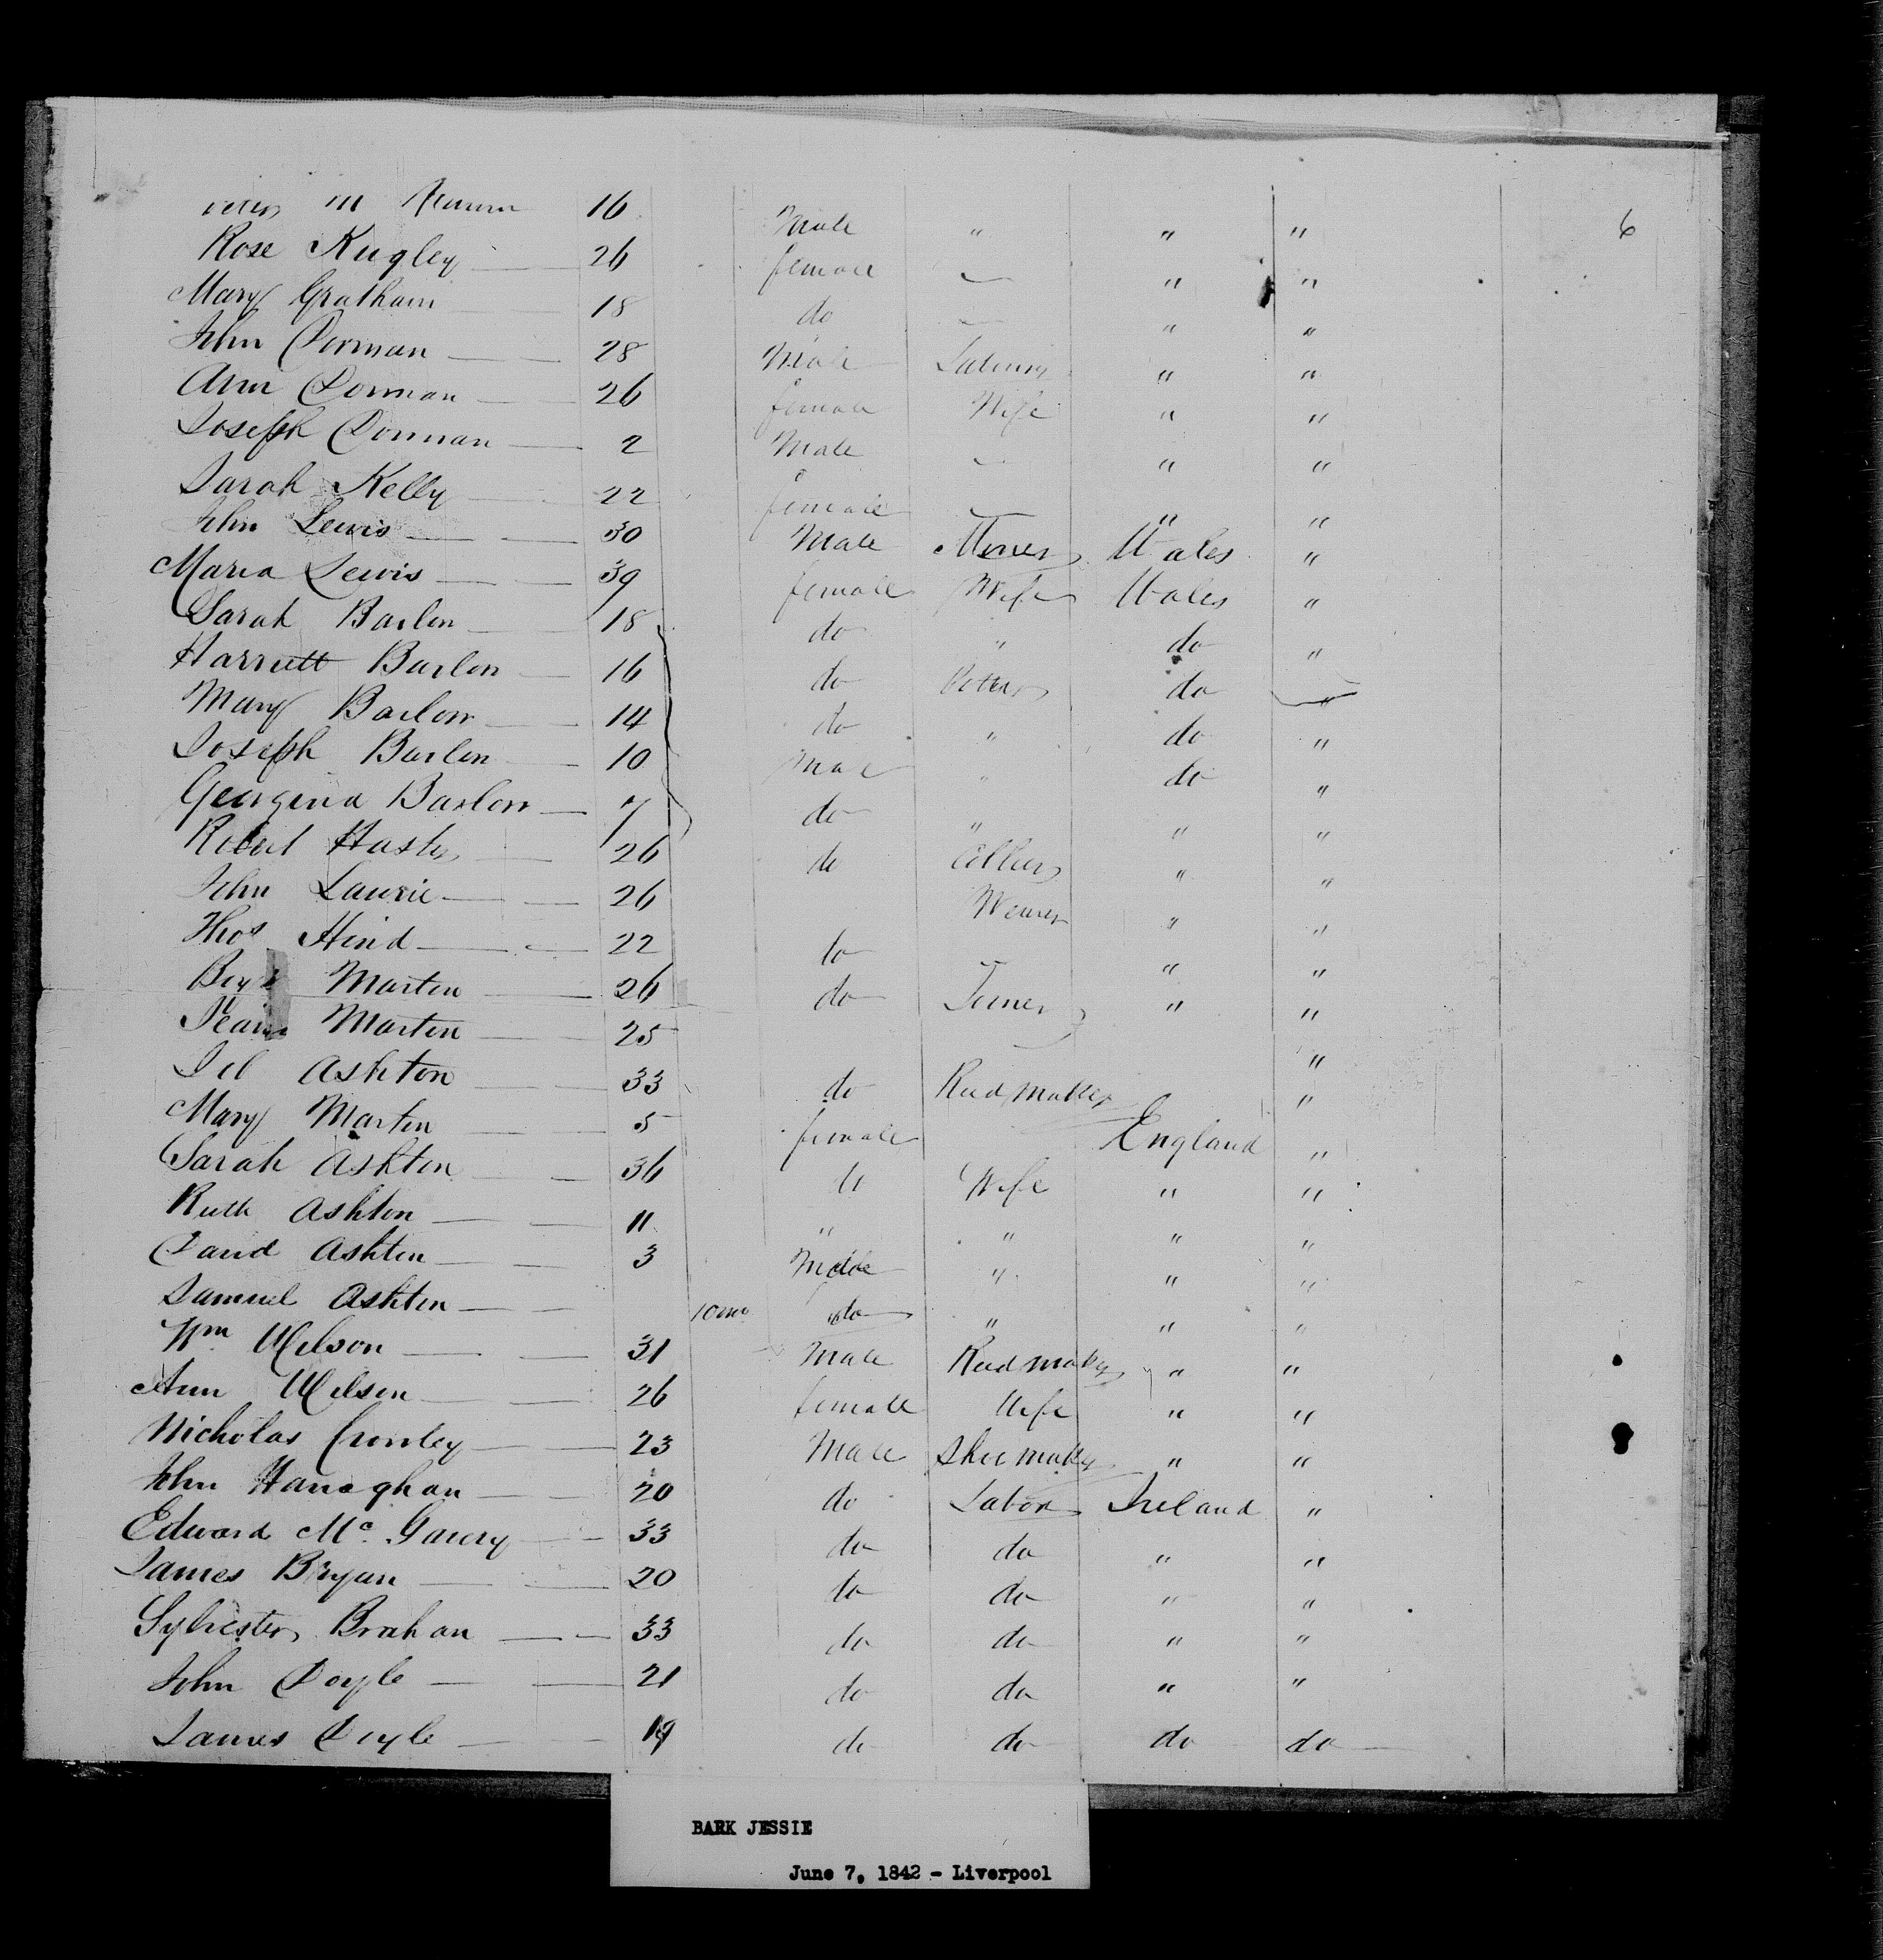 16 Male " " " 6
Rose Kugley 26 female " "
Mary Gratham 18 do " "
John Dorman 28 Male " "
Ann Dorman 26 female Wife " "
Joseph Dorman 2 Male " "
Sarah Kelly 22 female " "
John Lewis 30 Male Miner Wales "
Maria Lewis 39 female Wife Wales "
Sarah Barlow 18 do " do "
Harriett Barlow 16 do do "
Mary Barlow 14 do " do "
Joseph Barlow 10 Male " do "
Georgina Barlow 7 do " " "
Robert 26 do Collier " "
John Laurie 26 Weaver " "
Thos Hind 22 do " "
Marten 26 do Joiner " "
Marten 25 "
Ashton 33 do Reed maker "
Mary Marten 5 female England "
Sarah Ashton 36 do Wife " "
Ruth Ashton 11 " " " "
David Ashton 3 Male " " "
Samuel Ashton 10 mo do " " "
Wm Wilson 31 Male Reed maker " "
Ann Wilson 26 female Wife " "
Nicholas 23 Male Shoe maker " "
John Hanaghan 20 do Labor Ireland "
Edward Mc 33 do do " "
James Bryan 20 do do " "
Sylvester Brahan 33 do do " "
John Doyle 21 do do " "
James Doyle 19 do do do do
BARK JESSIE
June 7, 1842 - Liverpool